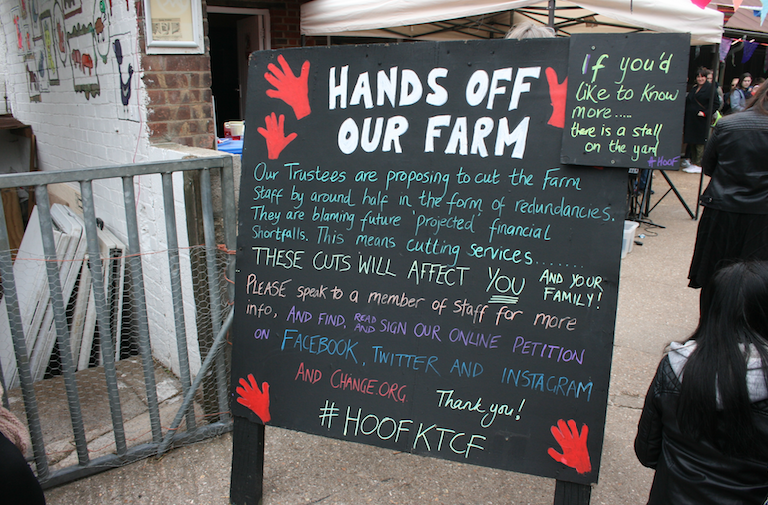 HANDS OFF
OUR FARM
Our Trustees are proposing to cut the Farm
Staff by around half in the form of redundancies.
They are blaming future 'projected' financial
Shortfalls. This means cutting services........
THESE CUTS WILL AFFECT YOU AND YOUR
FAMILY!
PLEASE speak to a member of staff for more
info, AND FIND, READ AND SIGN OUR ONLINE PETITION
ON FACEBOOK, TWITTER AND INSTAGRAM
AND CHANGE.ORG. Thank you!
#HOOFKTCF
If you'd
like to know
more.....
there is a stall
on the yard
#HOOF